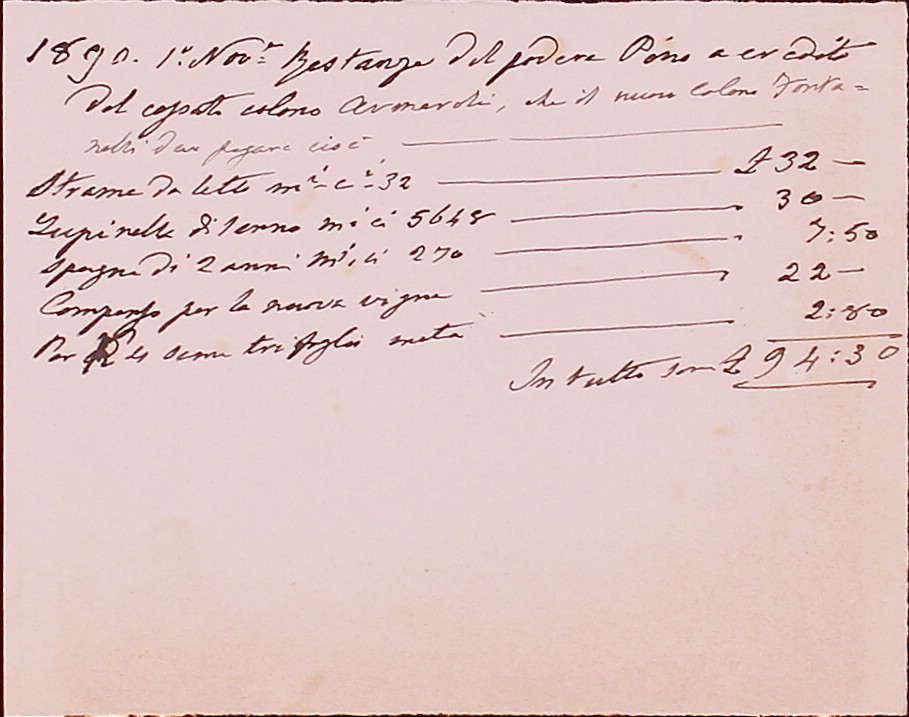 1890. 1º. Nov.e Restanze del podere Pino a credito
del cessato colono Armaroli, che il nuovo colono Fonta=
nelli deve pagare cioè
Strame da letto m.i c.i 32 £ 32 —
Lupinella di 1 anno m.i c.i 5648 30 —
Spagna di 2 anni m.i c.i 270 7:50
Compenso per la nuova vigna 22 —
Per seme trifoglio metà 2:80
In tutto sono £ 94:30